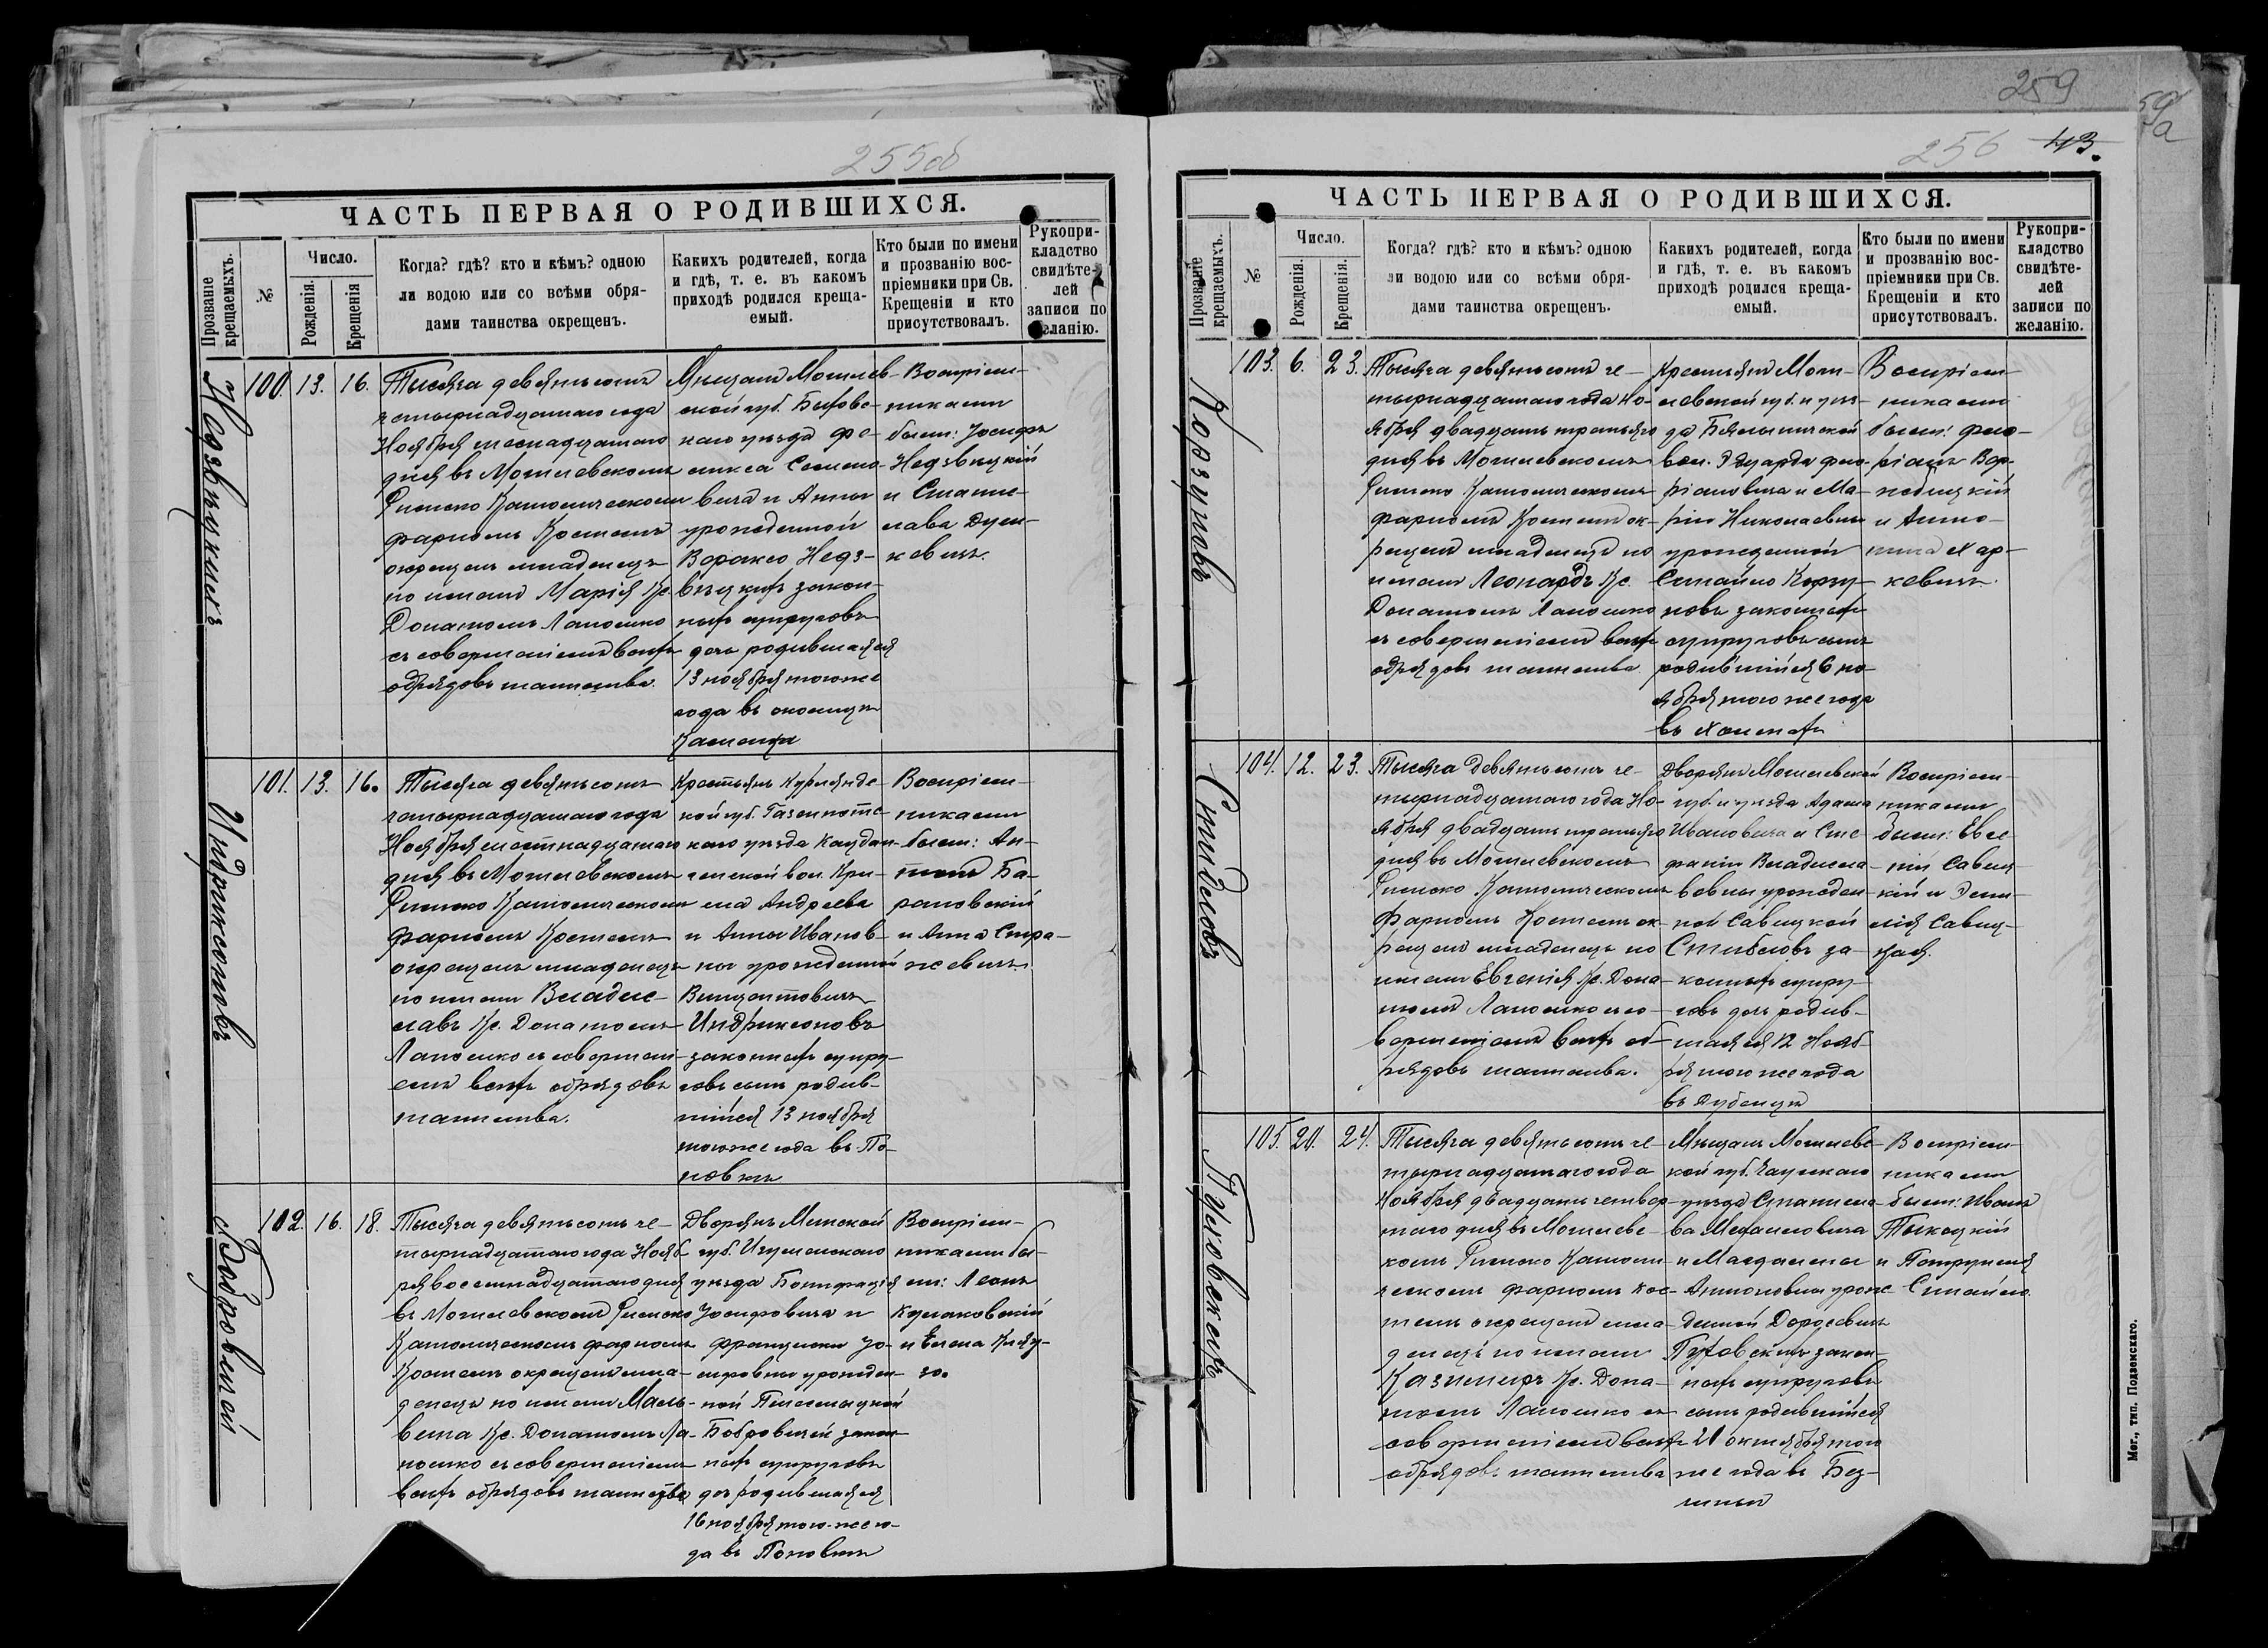 255об
ЧАСТЬ ПЕРВАЯ О РОДИВШИХСЯ.
Прозваніе крещаемыхъ.
№
Число.
Рожденія.
Крещенія
Когда? гдѣ? кто и кѣмъ? одною
ли водою или со всѣми обря-
дами таинства окрещенъ.
Какихъ родителей, когда
и гдѣ, т. е. въ какомъ
приходѣ родился креща-
емый.
Кто были по имени
и прозванію вос-
пріемники при Св.
Крещеніи и кто
присутствовалъ.
Рукопри-
кладство
свидѣте-
лей
записи по
желанію.
100. 13. 16.
Тысяча девятьсотъ
четырнадцатаго года
Ноября шестнадцатаго
дня въ Могилевскомъ
Римско Католическомъ
фарномъ Костелѣ
окрещенъ младенецъ
по имени Марія Кс.
Донатомъ Лапошко
съ совершеніемъ всѣхъ
обрядовъ таинства.
Мѣщанъ Могилев-
ской губ. Быховс-
каго уѣзда Фе-
ликса Семено-
вича и Анны
урожденной
Вораксо Недз-
вѣцкихъ закон-
ныхъ супруговъ
дочь родившаяся
13 ноября того же
года въ околицѣ
Воспріем-
никами
были: Іосифъ
Недзвѣцкій
и Станис-
лава Душ-
кевичъ.
Индриксоновъ
101. 13. 16.
Тысяча девятьсотъ
четырнадцатаго года
Ноября шестнадцатаго
дня въ Могилевскомъ
Римско Католическомъ
фарномъ Костелѣ
окрещенъ младенецъ
по имени Владис-
лавъ Кс. Донатомъ
Лапошко съ совершені-
емъ всѣхъ обрядовъ
таинства.
Крестьянъ Курлянд-
ской губ. Газенпотс-
каго уѣзда
волости
Андреева
и Анны Иванов-
ны урожденной
Винцентовичъ
Индриксоновъ
законныхъ супру-
говъ сынъ родив-
шійся 13 ноября
того же года въ По-
повкѣ
Воспріем-
никами
были: Ан-
тонъ Ба-
рановскій
и Анна Стра-
жевичъ.
Бобровичей
102. 16. 18.
Тысяча девятьсотъ че-
тырнадцатаго года Нояб-
ря восемнадцатаго дня
въ Могилевскомъ Римско
Католическомъ фарномъ
Костелѣ окрещенъ мла-
денецъ по имени Маль-
вина Кс. Донатомъ Ла-
пошко съ совершеніемъ
всѣхъ обрядовъ таинства
Дворянъ Минской
губ. Игуменскаго
уѣзда Бонифація
Іосифовича и
Франциски Іо-
сифовны урожден-
ной
Бобровичей закон-
ныхъ супруговъ
дочь родившаяся
16 ноября того же го-
да въ Поповкѣ
Воспріем-
никами бы-
ли: Леонъ
Кулаковскій
и Елена
259
256 43.
ЧАСТЬ ПЕРВАЯ О РОДИВШИХСЯ.
Прозваніе крещаемыхъ.
№
Число.
Рожденія.
Крещенія.
Когда? гдѣ? кто и кѣмъ? одною
ли водою или со всѣми обря-
дами таинства окрещенъ.
Какихъ родителей, когда
и гдѣ, т. е. въ какомъ
приходѣ родился креща-
емый.
Кто были по имени
и прозванію вос-
пріемники при Св.
Крещеніи и кто
присутствовалъ.
Рукопри-
кладство
свидѣте-
лей
записи по
желанію.
Корзуновъ
103. 6. 23.
Тысяча девятьсотъ че-
тырнадцатаго года Но-
ября двадцать третьяго
дня въ Могилевскомъ
Римско Католическомъ
фарномъ Костелѣ ок-
рещенъ младенецъ по
имени Леонардъ Кс.
Донатомъ Лапошко
съ совершеніемъ всѣхъ
обрядовъ таинства.
Крестьянъ Моги-
левской губ. и уѣз-
да Бялыничской
вол. Эдуарда Фло-
ріановича и Ма-
ріи Николаевны
урожденной
Станъло Корзу-
новъ законныхъ
супруговъ сынъ
родившійся 6 но-
ября того же года
въ
Воспріем-
никами
были: Фло-
ріанъ
и Анто-
нина Хар-
кевичъ.
104. 12. 23.
Тысяча девятьсотъ че-
тырнадцатаго года Но-
ября двадцать третьяго
дня въ Могилевскомъ
Римско Католическомъ
Фарномъ Костелѣ ок-
рещенъ младенецъ по
имени Евгенія Кс. Дона-
томъ Лапошко съ со-
вершеніемъ всѣхъ об-
рядовъ таинства.
Дворянъ Могилевской
губ. и уѣзда Адама
Ивановича и Сте-
фаніи Владисла-
вовны урожден-
ной Савицкой
за-
конныхъ супру-
говъ дочь родив-
шаяся 12 Нояб-
ря того же года
въ Дубенцѣ
Воспріем-
никами
были: Евге-
ній Савиц-
кій и Эми-
лія Савиц-
кая.
105. 20. 24.
Тысяча девятьсотъ че-
тырнадцатаго года
Ноября двадцать четвер-
таго дня въ Могилевс-
комъ Римско Католи-
ческомъ фарномъ Кос-
телѣ окрещенъ мла-
денецъ по имени
Казимиръ Кс. Дона-
томъ Лапошко съ
совершеніемъ всѣхъ
обрядовъ таинства
Мѣщанъ Могилевс-
кой губ. Чаусскаго
уѣзда Станисла-
ва Михайловича
и Магдалены
Антоновны урож-
денной
законныхъ супруговъ
сынъ родившійся
20 октября того
же года въ
Воспріем-
никами
были: Иванъ
Тыкоцкій
и Петрунеля
Мог., тип. Подземскаго.